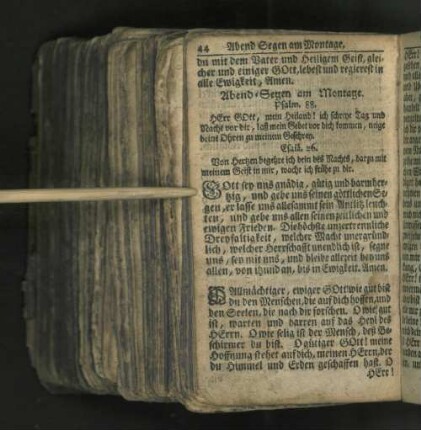 44 Abend Segen am Montage.
du mit dem Vater und Heiligem Geist, glei-
cher und einiger GOtt, lebest und regierest in
alle Ewigkeit, Amen.
Abend-Segen am Montage.
Psalm. 88.
HErr GOtt, mein Heiland! ich schreye Tag und
Nacht vor dir, laß mein Gebet vor dich kommen, neige
deine Ohren zu meinem Geschrey.
Esaiä. 26.
Von Hertzen begehre ich dein des Nachts, darzu mit
meinem Geist in mir, wache ich frühe zu dir.
GOtt sey uns gnädig, gütig und barmher-
tzig, und gebe uns seinen göttlichen Se-
gen, er lasse uns allesammt sein Antlitz leuch-
ten, und gebe uns allen seinen zeitlichen und
ewigen Frieden. Die höchste unzertrennliche
Dreyfaltigkeit, welcher Macht unergründ-
lich, welcher Herrschafft unendlich ist, segne
uns, sey mit uns, und bleibe allezeit bey uns
allen, von itzund an, bis in Ewigkeit. Amen.
Allmächtiger, ewiger GOtt wie gut bist
du den Menschen, die auf dich hoffen, und
den Seelen, die nach dir forschen. O wie gut
ist, warten und harren auf das Heyl des
HErrn. O wie selig ist der Mensch, deß Be-
schirmer du bist. O gütiger GOtt! meine
Hoffnung stehet auf dich, meinen HErrn, der
du Himmel und Erden geschaffen hast. O
HErr!